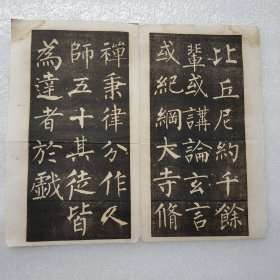 比丘尼約千餘
輩或講論玄言
或紀綱大寺脩
禪秉律分作人
師五十其徒皆
為達者於戲